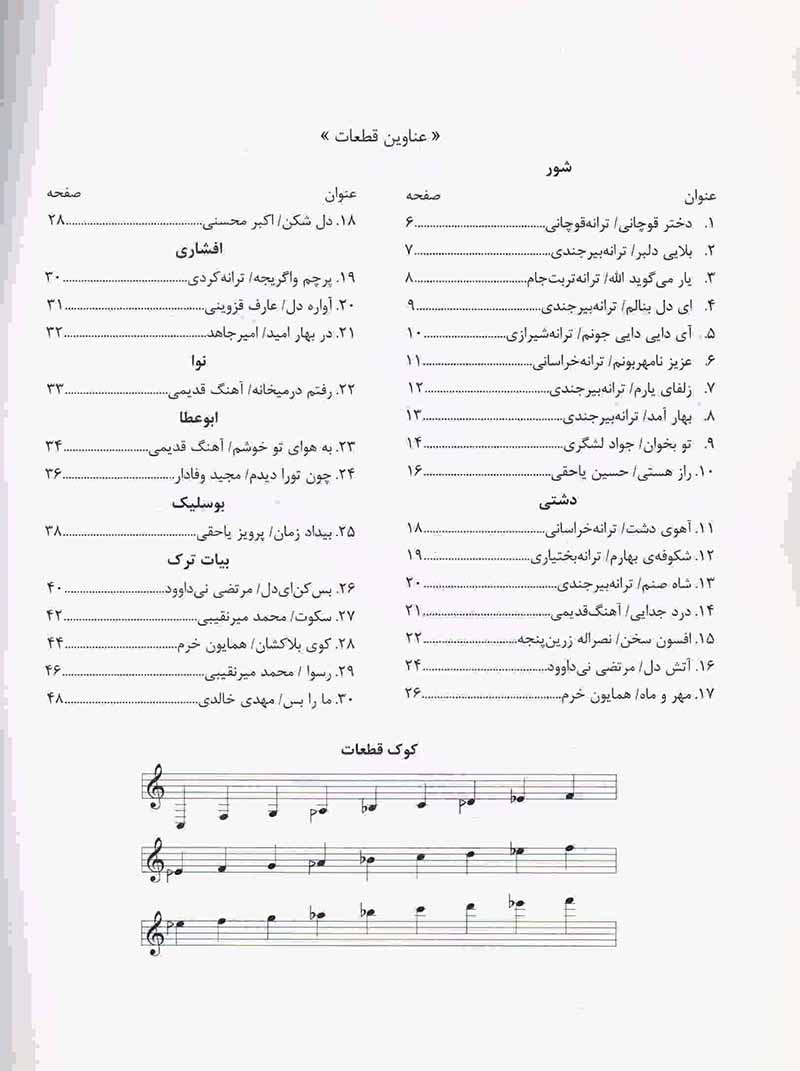 « عناوین قطعات »
شور
عنوان صفحه
۱. دختر قوچانی/ ترانه‌قوچانی........................................۶
۲. بلایی دلبر/ ترانه‌بیرجندی........................................۷
۳. یار می‌گوید الله/ ترانه‌تربت‌جام........................................۸
۴. ای دل بنالم/ ترانه‌بیرجندی........................................۹
۵. آی دایی دایی جونم/ ترانه‌شیرازی........................................۱۰
۶. عزیز نامهربونم/ ترانه‌خراسانی........................................۱۱
۷. زلفای یارم/ ترانه‌بیرجندی........................................۱۲
۸. بهار آمد/ ترانه‌بیرجندی........................................۱۳
۹. تو بخوان/ جواد لشگری........................................۱۴
۱۰. راز هستی/ حسین یاحقی........................................۱۶
دشتی
۱۱. آهوی دشت/ ترانه‌خراسانی........................................۱۸
۱۲. شکوفه‌ی بهارم/ ترانه‌بختیاری........................................۱۹
۱۳. شاه صنم/ ترانه‌بیرجندی........................................۲۰
۱۴. درد جدایی/ آهنگ‌قدیمی........................................۲۱
۱۵. افسون سخن/ نصراله زرین‌پنجه........................................۲۲
۱۶. آتش دل/ مرتضی نی‌داوود........................................۲۴
۱۷. مهر و ماه/ همایون خرم........................................۲۶
عنوان صفحه
۱۸. دل شکن/ اکبر محسنی........................................۲۸
افشاری
۱۹. پرچم واگریجه/ ترانه‌کردی........................................۳۰
۲۰. آواره دل/ عارف قزوینی........................................۳۱
۲۱. در بهار امید/ امیرجاهد........................................۳۲
نوا
۲۲. رفتم درمیخانه/ آهنگ قدیمی........................................۳۳
ابوعطا
۲۳. به هوای تو خوشم/ آهنگ قدیمی........................................۳۴
۲۴. چون تورا دیدم/ مجید وفادار........................................۳۶
بوسلیک
۲۵. بیداد زمان/ پرویز یاحقی........................................۳۸
بیات ترک
۲۶. بس‌کن‌ای‌دل/ مرتضی نی‌داوود........................................۴۰
۲۷. سکوت/ محمد میرنقیبی........................................۴۲
۲۸. کوی بلاکشان/ همایون خرم........................................۴۴
۲۹. رسوا / محمد میرنقیبی........................................۴۶
۳۰. ما را بس/ مهدی خالدی........................................۴۸
کوک قطعات